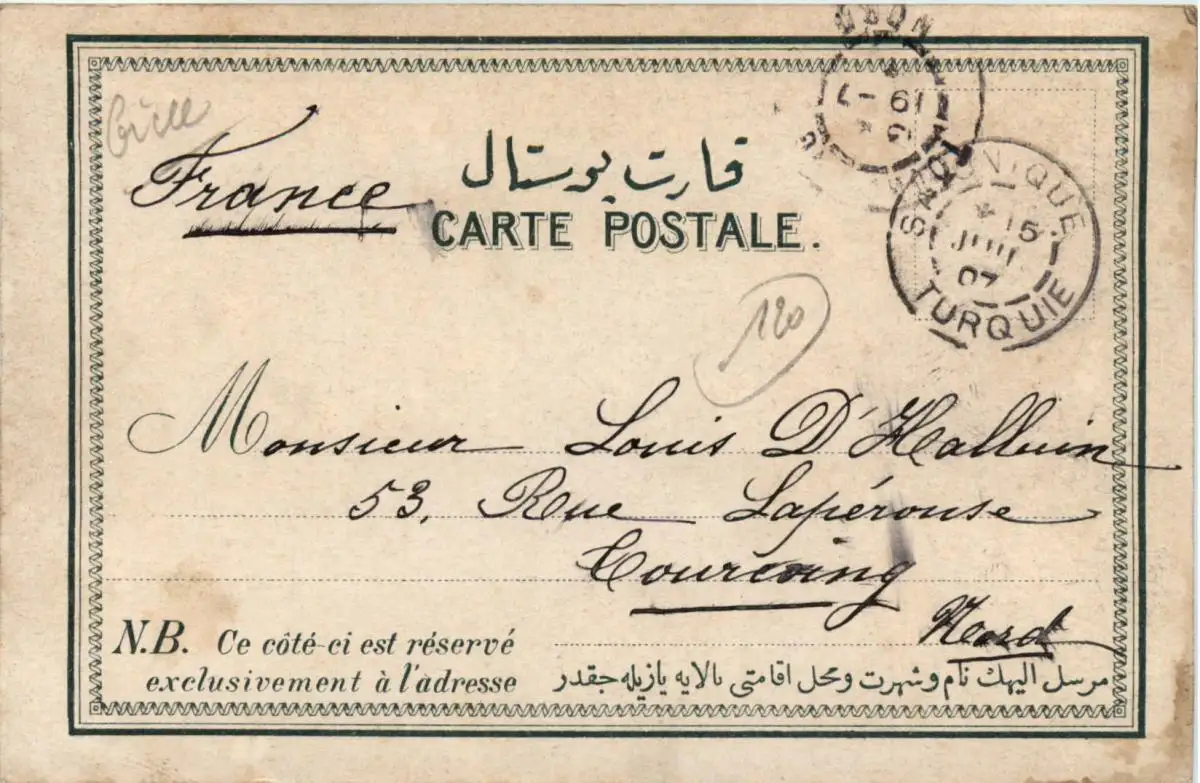 France
قارت پوستال
CARTE POSTALE.
SALONIQUE
15
JUIL
07
TURQUIE
19 -7
NORD
120
Monsieur Louis D'Halluin
53. Rue Lapérouse
Tourcoing
Nord
N.B. Ce côté-ci est réservé
exclusivement à l'adresse
مرسل اليهك نام و شهرت و محل اقامتی بالایه یازیله جقدر